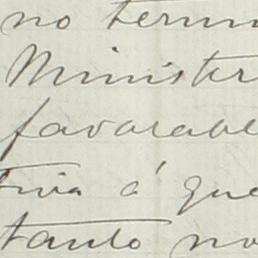 no term
Minister
favorable
tiva á que
tanto no